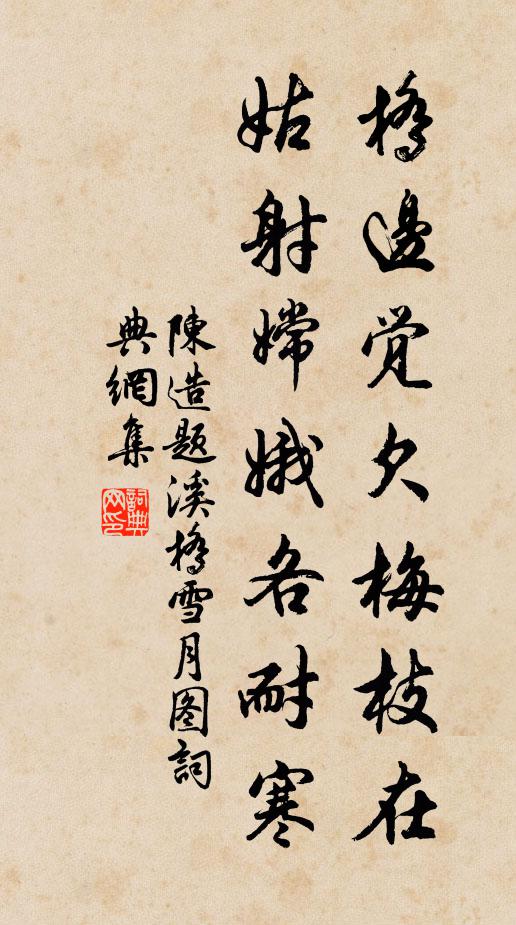 橋邊覺欠梅枝在
姑射嫦娥各耐寒
陳造題溪橋雪月图詞
典網集
詞典網印